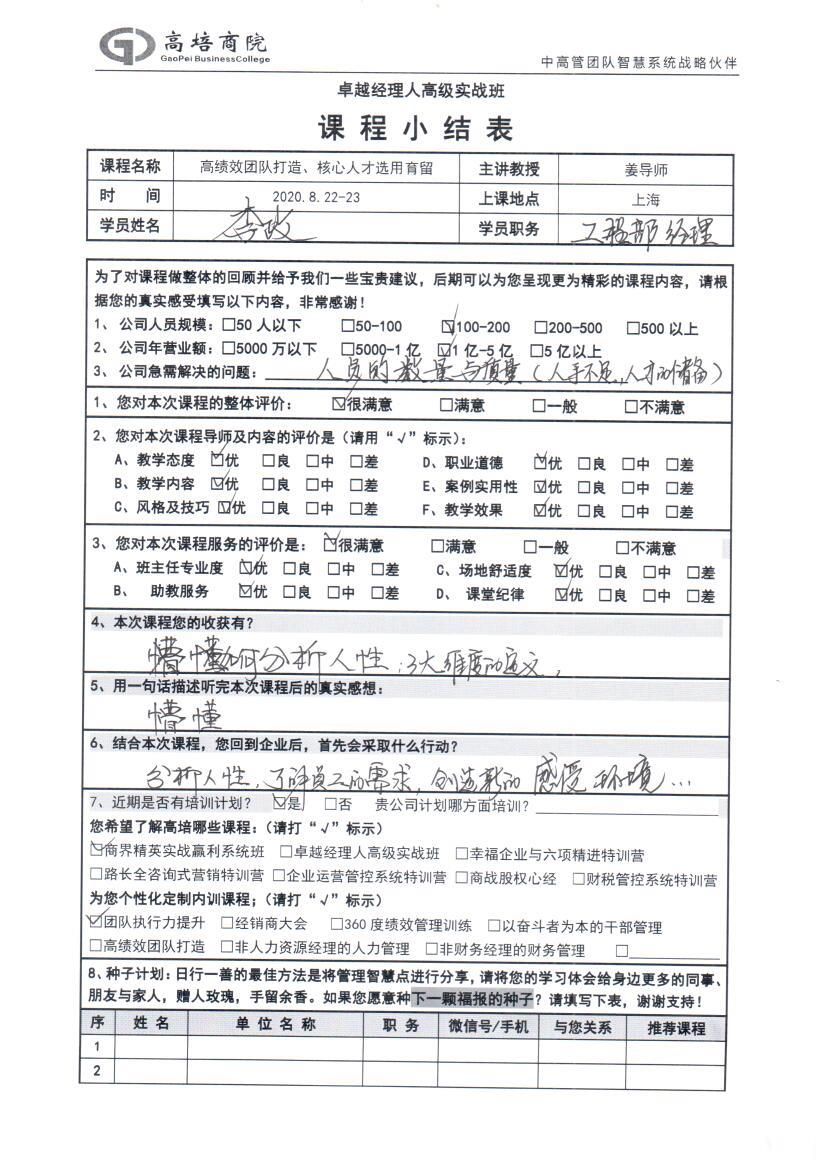 高培商院
GaoPei BusinessCollege
中高管团队智慧系统战略伙伴
卓越经理人高级实战班
课程小结表
课程名称 高绩效团队打造、核心人才选用育留 主讲教授 姜导师
时 间 2020.8.22-23 上课地点 上海
学员姓名 李政 学员职务 工程部经理
为了对课程做整体的回顾并给予我们一些宝贵建议，后期可以为您呈现更为精彩的课程内容，请根
据您的真实感受填写以下内容，非常感谢！
1、公司人员规模：□50人以下 □50-100 ☑100-200 □200-500 □500以上
2、公司年营业额：□5000万以下 □5000-1亿 ☑1亿-5亿 □5亿以上
3、公司急需解决的问题：人员的数量与质量（人手不足，人才的储备）
1、您对本次课程的整体评价： ☑很满意 □满意 □一般 □不满意
2、您对本次课程导师及内容的评价是（请用“√”标示）：
A、教学态度 ☑优 □良 □中 □差 D、职业道德 ☑优 □良 □中 □差
B、教学内容 ☑优 □良 □中 □差 E、案例实用性 ☑优 □良 □中 □差
C、风格及技巧 ☑优 □良 □中 □差 F、教学效果 ☑优 □良 □中 □差
3、您对本次课程服务的评价是： ☑很满意 □满意 □一般 □不满意
A、班主任专业度 ☑优 □良 □中 □差 C、场地舒适度 ☑优 □良 □中 □差
B、 助教服务 ☑优 □良 □中 □差 D、 课堂纪律 ☑优 □良 □中 □差
4、本次课程您的收获有？
懵懂如何分析人性：3大维度的定义，
5、用一句话描述听完本次课程后的真实感想：
懵懂
6、结合本次课程，您回到企业后，首先会采取什么行动？
分析人性，了解员工的需求，创造新的感受环境…
7、近期是否有培训计划？ ☑是 □否 贵公司计划哪方面培训？
您希望了解高培哪些课程：（请打“√”标示）
☑商界精英实战赢利系统班 □卓越经理人高级实战班 □幸福企业与六项精进特训营
□路长全咨询式营销特训营 □企业运营管控系统特训营 □商战股权心经 □财税管控系统特训营
为您个性化定制内训课程；（请打“√”标示）
☑团队执行力提升 □经销商大会 □360度绩效管理训练 □以奋斗者为本的干部管理
□高绩效团队打造 □非人力资源经理的人力管理 □非财务经理的财务管理 □
8、种子计划：日行一善的最佳方法是将管理智慧点进行分享，请将您的学习体会给身边更多的同事、
朋友与家人，赠人玫瑰，手留余香。如果您愿意种下一颗福报的种子？请填写下表，谢谢支持！
序 姓 名 单 位 名 称 职 务 微信号/手机 与您关系 推荐课程
1
2